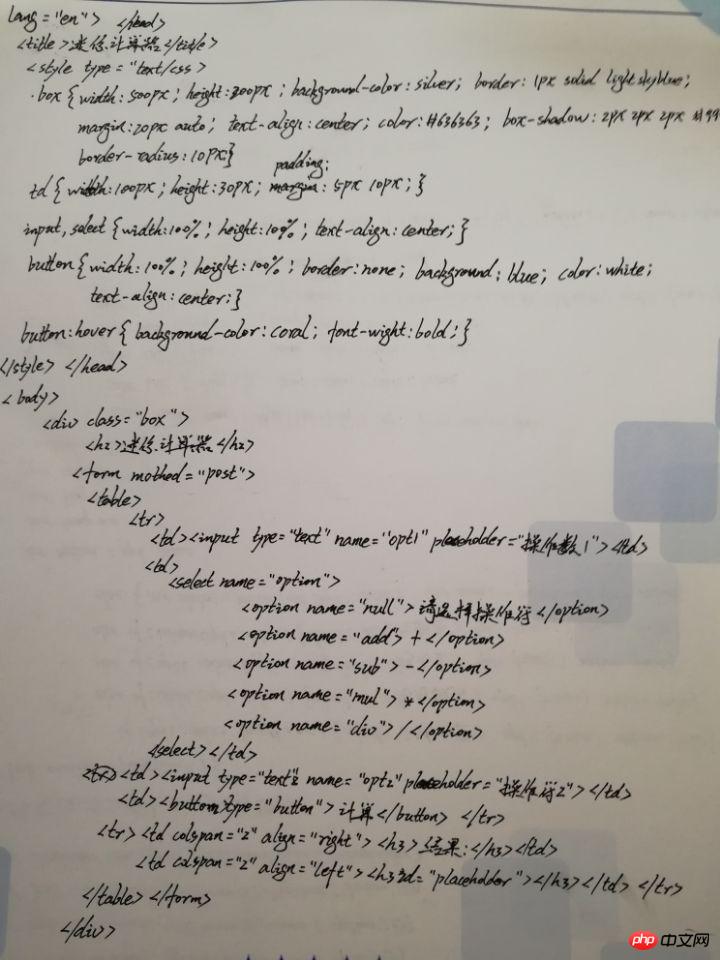 lang="en"> </head>
<title>迷你计算器</title>
<style type="text/css>
.box{width:500px; height:300px; background-color:silver; border:1px solid lightskyblue;
margin:20px auto; text-align:center; color:#636363; box-shadow:2px 2px 2px #99
border-radius:10px}
padding:
td{width:100px; height:30px; margin: 5px 10px;}
input,select{width:100%; height:100%; text-align:center;}
button{width:100%; height:100%; border:none; background:blue; color:white;
text-align:center;}
button:hover{background-color:coral; font-wight:bold;}
</style> </head>
<body>
<div class="box">
<h2>迷你计算器</h2>
<form mothed="post">
<table>
<tr>
<td><input type="text" name="opt1" placeholder="操作数1"><td>
<td>
<select name="option">
<option name="null">请选择操作符</option>
<option name="add">+</option>
<option name="sub">-</option>
<option name="mul">*</option>
<option name="div">/</option>
</select></td>
<td><input type="text" name="opt2" placeholder="操作符2"></td>
<td><button type="button">计算</button> </tr>
<tr><td colspan="2" align="right"><h3>结果:</h3><td>
<td colspan="2" align="left"><h3 id="placeholder"></h3></td></tr>
</table></form>
</div>
php 中文网